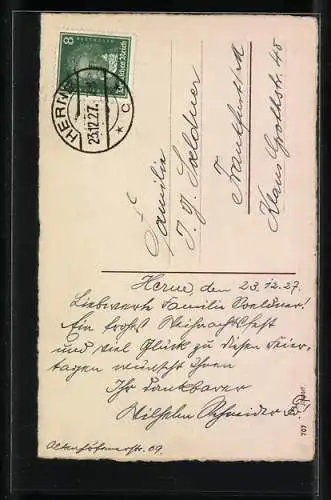 8
Deutsches Reich
HERNE
23.12.27.
* c
Familie
J. H. Soldner
Frankfurt a/M
Klaus Grothstr. 45
Herne, den 23.12.27.
Liebwerte Familie Soeldner!
Ein frohes Weihnachtsfest
und viel Glück zu diesen Feier-
tagen wünscht Ihnen
Ihr dankbarer
Wilhelm Schneider
Altenhöfenerstr. 69.
707